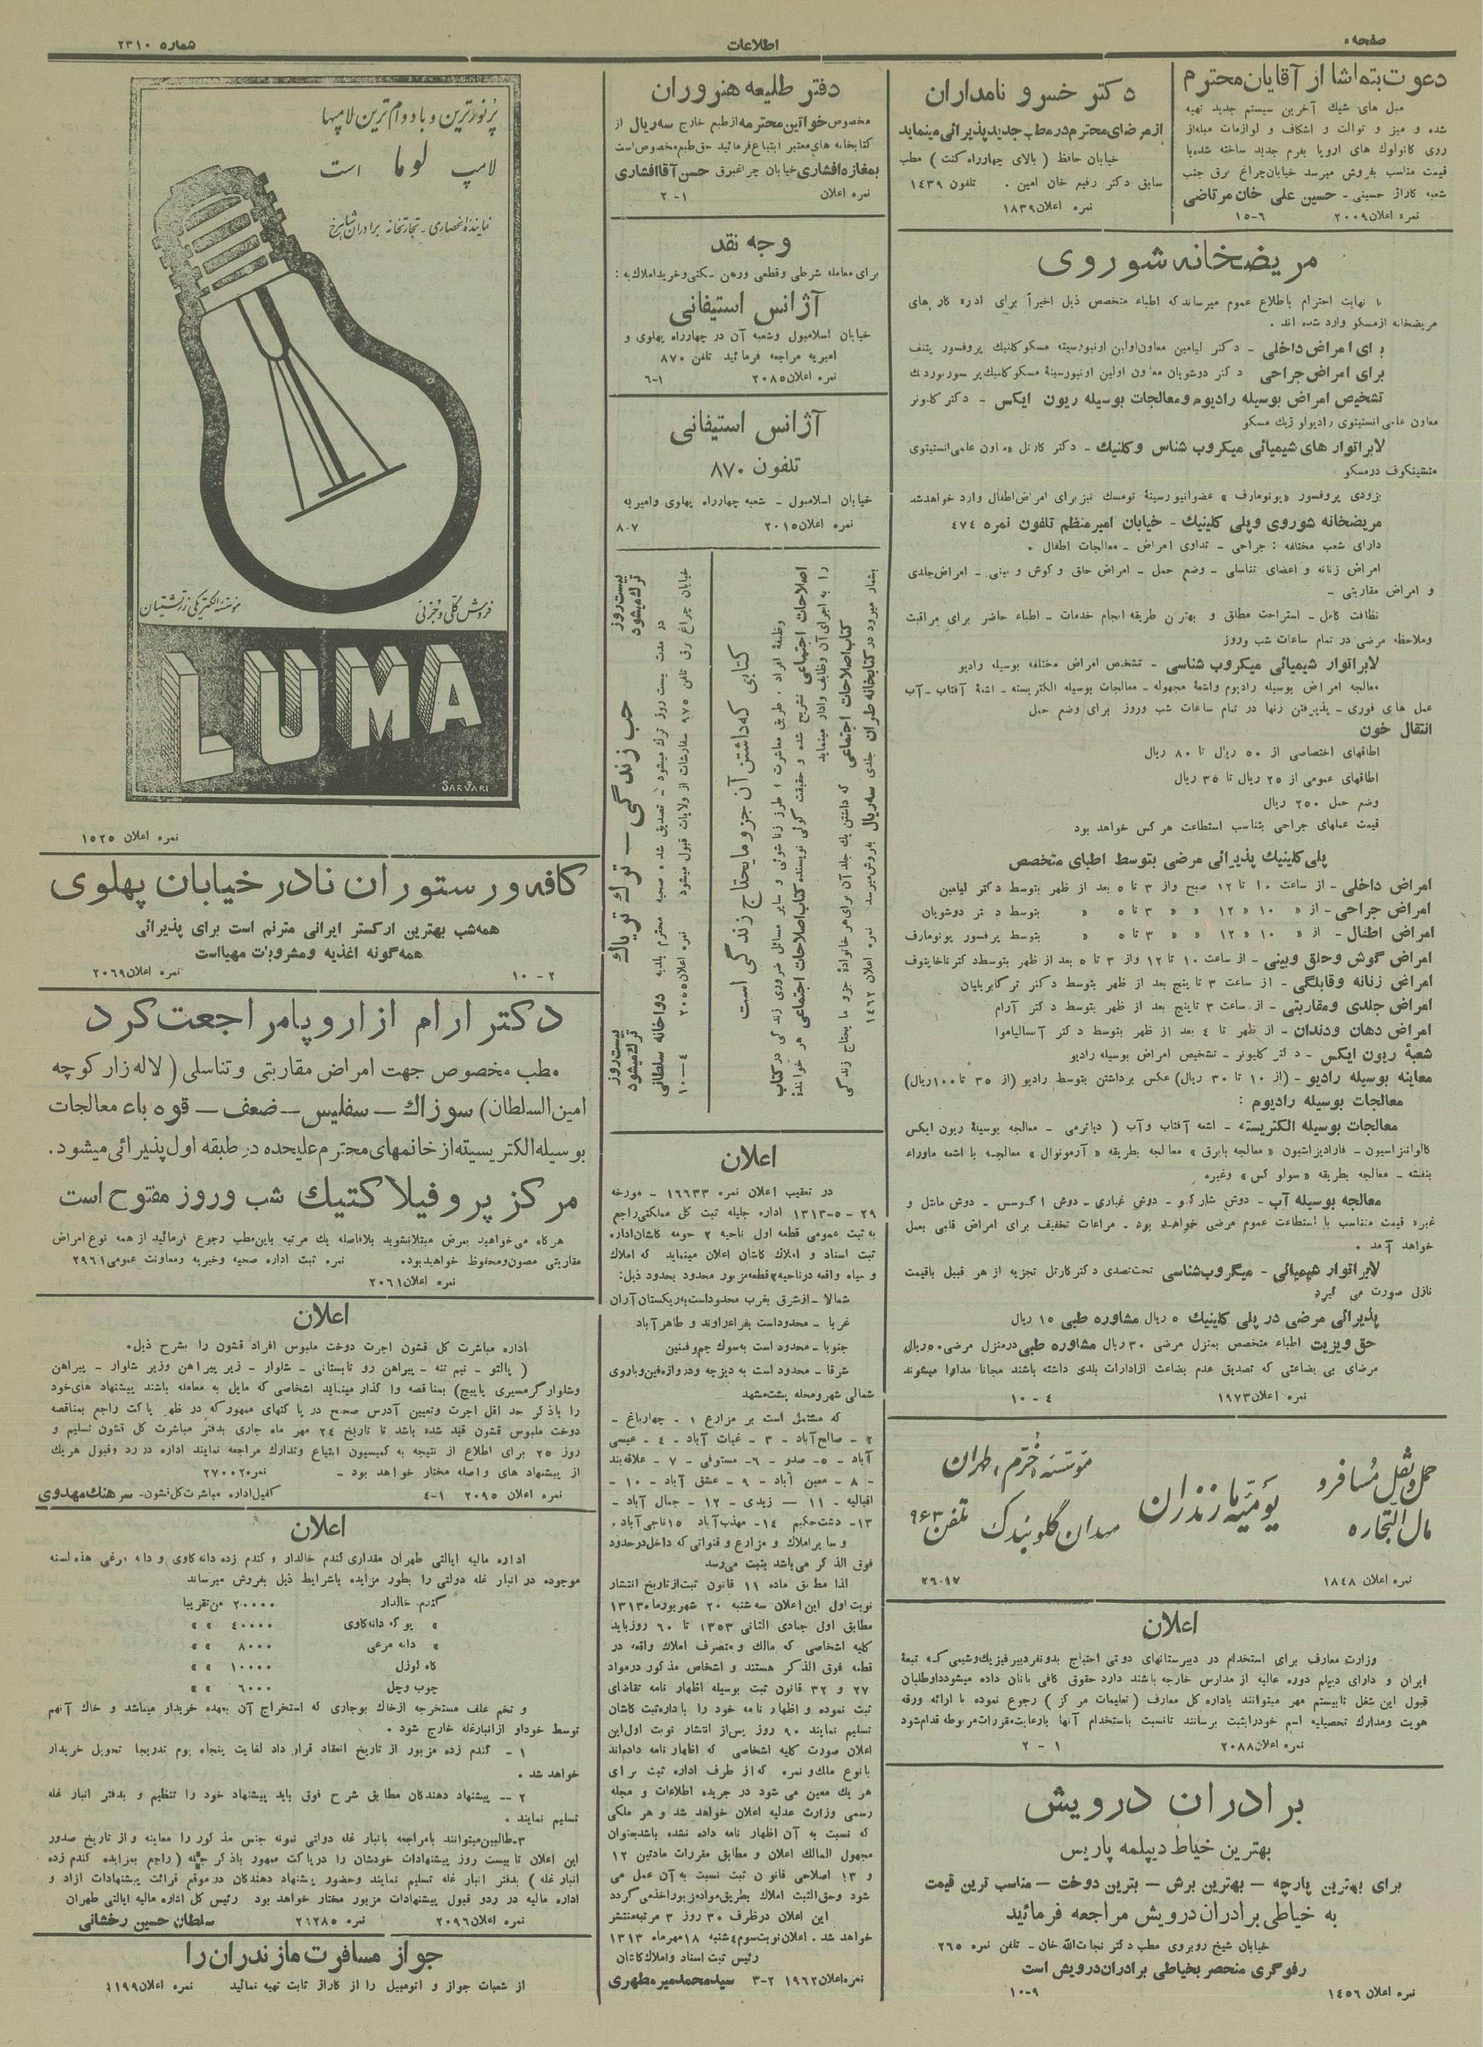 صفحه
اطلاعات
شماره ۲۳۱۰
دعوت بتماشا از آقایان محترم
مبل های شیك آخرین سیستم جدید تهیه
شده و میز و توالت و اشکاف و لوازمات مبله از
روی کاتولوك های اروپا بفرم جدید ساخته شده با
قیمت مناسب بفروش میرسد خیابان چراغ برق جنب
شعبه کاراژ حسینی - حسین علی خان مرتاضی
نمره اعلان ۲۰۰۹ ۶-۱۵
دکتر خسرو نامداران
از مرضای محترم در مطب جدید پذیرائی مینماید
خیابان حافظ ( بالای چهارراه کنت ) مطب
سابق دکتر رفیع خان امین . تلفون ۱۴۳۹
نمره اعلان ۱۸۳۹
مریضخانه شوروی
با نهایت احترام باطلاع عموم میرساند که اطباء متخصص ذیل اخیراً برای اداره کارهای
مریضخانه از مسکو وارد شده اند .
برای امراض داخلی - دکتر لیامین معاون اولین اونیورسیته مسکو کلنیك پروفسور پلتنف
برای امراض جراحی دکتر دوشویان معاون اولین اونیورسیتهٔ مسکو کلنیك پرفسور بوردنك
تشخیص امراض بوسیله رادیوم و معالجات بوسیله ریون ایکس - دکتر کلیونر
معاون علمی انستیتوی رادیولوژیك مسکو
لابراتوار های شیمیائی میکروب شناس و کلنیك - دکتر کارتل معاون علمی انستیتوی
متشینکوف در مسکو
بزودی پروفسور «یونومارف» عضو انیورسیتهٔ تومسك نیز برای امراض اطفال وارد خواهد شد
مریضخانه شوروی و پلی کلینیك - خیابان امیر منظم تلفون نمره ۴۷۴
دارای شعب مختلفه : جراحی - تداوی امراض - معالجات اطفال .
امراض زنانه و اعضای تناسلی - وضع حمل - امراض حلق و گوش و بینی - امراض جلدی
و امراض مقاربتی -
نظافت کامل - استراحت مطلق و بهترین طریقه انجام خدمات - اطباء حاضر برای مراقبت
و ملاحظه مرضی در تمام ساعات شب و روز
لابراتوار شیمیائی میکروب شناسی - تشخیص امراض مختلفه بوسیله رادیو
معالجه امراض بوسیله رادیوم واشعهٔ مجهوله - معالجات بوسیله الکتریسته - اشعهٔ آفتاب - آب
عمل های فوری - پذیرفتن زنها در تمام ساعات شب وروز برای وضع حمل
انتقال خون
اطاقهای اختصاصی از ۵۰ ریال تا ۸۰ ریال
اطاقهای عمومی از ۲۵ ریال تا ۳۵ ریال
وضع حمل ۲۵۰ ریال
قیمت عملهای جراحی بتناسب استطاعت هر کس خواهد بود
پلی کلینیك پذیرائی مرضی بتوسط اطبای متخصص
امراض داخلی - از ساعت ۱۰ تا ۱۲ صبح واز ۳ تا ۵ بعد از ظهر بتوسط دکتر لیامین
امراض جراحی - از « ۱۰ « ۱۲ « « ۳ تا ۵ « بتوسط دکتر دوشویان
امراض اطفال - از « ۱۰ « ۱۲ « « ۳ تا ۵ « بتوسط پرفسور یونومارف
امراض گوش وحلق وبینی - از ساعت ۱۰ تا ۱۲ واز ۳ تا ۵ بعد از ظهر بتوسط دکتر ناخایتوف
امراض زنانه وقابلگی - از ساعت ۳ تا پنج بعد از ظهر بتوسط دکتر تر گابریلیان
امراض جلدی ومقاربتی - از ساعت ۳ تا پنج بعد از ظهر بتوسط دکتر آرام
امراض دهان ودندان - از ظهر تا ۴ بعد از ظهر بتوسط دکتر آسالیاموا
شعبهٔ ریون ایکس - دکتر کلیونر - تشخیص امراض بوسیله رادیو
معاینه بوسیله رادیو - (از ۱۰ تا ۳۰ ریال) عکس برداشتن بتوسط رادیو (از ۳۵ تا ۱۰۰ ریال)
معالجات بوسیله رادیوم :
معالجات بوسیله الکتریسته - اشعه آفتاب وآب ( دیاترمی - معالجه بوسیلهٔ ریون ایکس
گالوانیزاسیون - فارادیزاسیون «معالجه بابرق» معالجه بطریقه «آرسونوال» معالجه با اشعه ماوراء
بنفشه - معالجه بطریقه «سولوکس» وغیره
معالجه بوسیله آب - دوش شارکو - دوش غباری - دوش اگوسس - دوش مانتل و
غیره قیمت متناسب با استطاعت عموم مرضی خواهد بود - مراعات تخفیف برای امراض قلبی بعمل
خواهد آمد .
لابراتوار شیمیائی - میکروب شناسی تحت تصدی دکتر کارتل تجزیه از هر قبیل با قیمت
نازل صورت می گیرد
پذیرائی مرضی در پلی کلینیك ۵ ریال مشاوره طبی ۱۵ ریال
حق ویزیت اطباء متخصص بمنزل مرضی ۳۰ ریال مشاوره طبی در منزل مرضی ۵۰ ریال
مرضای بی بضاعتی که تصدیق عدم بضاعت از ادارات بلدی داشته باشند مجانا مداوا میشوند
نمره اعلان ۱۹۷۳ ۴ - ۱۰
حمل و نقل مسافر و
مال التجاره
یومیه مازندران
موسسه خرم، طهران
میدان گلوبندك تلفن ۹۶۳
نمره اعلان ۱۸۴۸ ۱۷-۲۶
اعلان
وزارت معارف برای استخدام در دبیرستانهای دولتی احتیاج بدو نفر دبیر فیزیك وشیمی که تبعهٔ
ایران و دارای دیپلم دوره عالیه از مدارس خارجه باشند دارد حقوق کافی بآنان داده میشود داوطلبان
قبول این شغل تا بیستم مهر میتوانند باداره کل معارف ( تعلیمات مرکز ) رجوع نموده با ارائه ورقه
هویت ومدارك تحصیلیه اسم خود را ثبت برسانند تا نسبت باستخدام آنها با رعایت مقررات مربوطه قدام شود
نمره اعلان ۲۰۸۸ ۱ - ۲
برادران درویش
بهترین خیاط دیپلمه پاریس
برای بهترین پارچه - بهترین برش - بترین دوخت - مناسب ترین قیمت
به خیاطی برادران درویش مراجعه فرمائید
خیابان شیخ روبروی مطب دکتر نجات الله خان - تلفن نمره ۲۶۵
رفوگری منحصر بخیاطی برادران درویش است
نمره اعلان ۱۴۵۶ ۹-۱۰
دفتر طلیعه هنروران
مخصوص خواتین محترمه از طبع خارج سه ریال از
کتابخانه های معتبر ابتیاع فرمائید حق طبع مخصوص است
بمغازه افشاری خیابان چراغبرق حسن آقا افشاری
نمره اعلان ۱-۲
وجه نقد
برای معامله شرطی وقطعی ورهن سکنی وخرید املاك به :
آژانس استیفانی
خیابان اسلامبول وشعبه آن در چهارراه پهلوی و
امیریه مراجعه فرمائید تلفن ۸۷۰
نمره اعلان ۲۰۸۵ ۱-۶
آژانس استیفانی
تلفون ۸۷۰
خیابان اسلامبول - شعبه چهارراه پهلوی وامیریه
نمره اعلان ۲۰۱۵ ۷-۸
کتابی که داشتن آن جزو مایحتاج زندگی است
وظیفهٔ افراد ، طریق معاشرت ؛ طرز زناشوئی و سایر مسائل ضروری زندگی در کتاب
اصلاحات اجتماعی تشریح شده و حقیقت گوئی نویسنده کتاب اصلاحات اجتماعی هر خوانندهٔ
را به اجرای آن وظایف وادار مینماید
کتاب اصلاحات اجتماعی که داشتن یك جلد آن برای هر خانوادهٔ جزو مایحتاج زندگی
بشمار میرود در کتابخانه طهران جلدی سه ریال بفروش میرسد نمره اعلان ۱۴۶۲
بیست روز ترك میشود
حب زندگی - ترك تریاك
بیست روز ترك میشود
در مدت بیست روز ترك میشود - تصدیق شده صحیه محترم بلدیه دواخانه سلطانی
خیابان چراغ برق تلفن ۹۷۵ سفارشات از ولایات قبول میشود نمره اعلان ۲۰۵۵ ۴-۱۰
اعلان
در تعقیب اعلان نمره ۱۶۶۳۳ - مورخه
۲۹-۵-۱۳۱۳ اداره جلیله ثبت کل مملکتی راجع
به ثبت عمومی قطعه اول ناحیه ۲ حومه کاشان اداره
ثبت اسناد و املاك کاشان اعلان مینماید که املاك
و میاه واقعه در ناحیه ۲ قطعه مزبور محدود بحدود ذیل:
شمالا - از شرق بغرب محدود است به ریکستان آران
غربا - محدود است بفراء راوند و طاهر آباد
جنوبا - محدود است به سوك چم و فینین
شرقا - محدود است به دیزچه ودروازه فین وباروی
شمالی شهر ومحله پشت مشهد
که مشتمل است بر مزارع ۱ - چهارباغ -
۲ - صالح آباد - ۳ - غیاث آباد - ۴ - عیسی
آباد - ۵ - صدو - ۶ - مستوفی - ۷ - علاقه بند
- ۸ - معین آباد - ۹ - عشق آباد - ۱۰ -
اقبالیه - ۱۱ - زیدی - ۱۲ - جمال آباد -
۱۳ - دشت حکیم ۱۴ - مهذب آباد ۱۵ ناجی آباد .
و سایر املاك و مزارع و قنواتی که داخل در حدود
فوق الذکر می باشد بثبت می رسد
لذا مطابق ماده ۱۱ قانون ثبت از تاریخ انتشار
نوبت اول این اعلان سه شنبه ۲۰ شهریور ماه ۱۳۱۳
مطابق اول جمادی الثانی ۱۳۵۳ تا ۶۰ روز باید
کلیه اشخاصی که مالك و متصرف املاك واقعه در
قطعه فوق الذکر هستند و اشخاص مذکور در مواد
۲۷ و ۳۲ قانون ثبت بوسیله اظهار نامه تقاضای
ثبت نموده و اظهار نامه خود را باداره ثبت کاشان
تسلیم نمایند ۹۰ روز پس از انتشار نوبت اول این
اعلان صورت کلیه اشخاصی که اظهار نامه داده اند
با نوع ملك و نمره که از طرف اداره ثبت برای
هر یك معین می شود در جریده اطلاعات و مجله
رسمی وزارت عدلیه اعلان خواهد شد و هر ملکی
که نسبت به آن اظهار نامه داده نشده باشد بعنوان
مجهول المالك اعلان و مطابق مقررات مادتین ۱۲
و ۱۳ اصلاحی قانون ثبت نسبت به آن عمل می
شود وحق الثبت املاك بطریق مواد مزبور اخذ می گردد
این اعلان در ظرف ۳۰ روز ۳ مرتبه منتشر
خواهد شد . اعلان نوبت سوم ۴ شنبه ۱۸ مهر ماه ۱۳۱۳
رئیس ثبت اسناد و املاك کاشان
نمره اعلان ۱۹۶۲ ۲-۳ سید محمد میر مطهری
پرنورترین و بادوام ترین لامپها
لامپ لوما است
نماینده انحصاری - تجارتخانه برادران شاهرخ
فروش کلی و جزئی
موسسه الکتریکی زرتشتیان
LUMA
SARVARI
نمره اعلان ۱۵۲۵
کافه و رستوران نادر خیابان پهلوی
همه شب بهترین ارکستر ایرانی مترنم است برای پذیرائی
همه گونه اغذیه ومشروبات مهیااست
نمره اعلان ۲۰۶۹ ۲ - ۱۰
دکتر ارام از اروپا مراجعت کرد
مطب مخصوص جهت امراض مقاربتی و تناسلی ( لاله زار کوچه
امین السلطان) سوزاك - سفلیس - ضعف - قوه باء معالجات
بوسیله الکتریسیته از خانمهای محترم علیحده در طبقه اول پذیرائی میشود.
مرکز پروفیلاکتیك شب وروز مفتوح است
هر گاه می خواهید بمرض مبتلا نشوید بلافاصله یك مرتبه باین مطب رجوع فرمائید از همه نوع امراض
مقاربتی مصون ومحفوظ خواهید بود. نمره ثبت اداره صحیه وخیریه ومعاونت عمومی ۲۹۶۱
نمره اعلان ۲۰۶۱
اعلان
اداره مباشرت کل قشون اجرت دوخت ملبوس افراد قشون را بشرح ذیل.
( پالتو - نیم تنه - پیراهن رو تابستانی - شلوار - زیر پیراهن وزیر شلوار - پیراهن
وشلوار گرمسیری پاپیچ) بمناقصه وا گذار مینماید اشخاصی که مایل به معامله باشند پیشنهاد های خود
را باذکر حد اقل اجرت وتعیین آدرس صحیح در پاکتهای ممهور که در ظهر پاکت راجع بمناقصه
دوخت ملبوس قشون قید شده باشد تا تاریخ ۲۴ مهر ماه جاری بدفتر مباشرت کل قشون تسلیم و
روز ۲۵ برای اطلاع از نتیجه به کمیسیون ابتیاع وتدارك مراجعه نمایند اداره در رد وقبول هر یك
از پیشنهاد های واصله مختار خواهد بود - نمره ۲۷۰۰۲
نمره اعلان ۲۰۹۵ ۱-۴ کفیل اداره مباشرت کل قشون- سرهنك مهدوی
اعلان
اداره مالیه ایالتی طهران مقداری گندم خالدار و گندم زده دانه کاوی و دانه مرغی هذه السنه
موجوده در انبار غله دولتی را بطور مزایده باشرایط ذیل بفروش میرساند
گندم خالدار ۲۰۰۰۰ من تقریبا
« پوکه دانه کاوی ۴۰۰۰۰ « «
« دانه مرغی ۸۰۰۰ « «
کاه لوزل ۱۰۰۰۰ « «
چوب وچل ۶۰۰۰ « «
و تخم علف مستخرجه از خاك بوجاری که استخراج آن بعهده خریدار میباشد و خاك آنهم
توسط خود او از انبار غله خارج شود .
۱ - گندم زده مزبور از تاریخ انعقاد قرار داد لغایت پنجاه یوم تدریجا تحویل خریدار
خواهد شد .
۲ - پیشنهاد دهندگان مطابق شرح فوق باید پیشنهاد خود را تنظیم و بدفتر انبار غله
تسلیم نمایند .
۳ - طالبین میتوانند بامراجعه بانبار غله دولتی نمونه جنس مذکور را معاینه واز تاریخ صدور
این اعلان تا بیست روز پیشنهادات خودشان را در پاکت ممهور باذکر جمله ( راجع بمزایده گندم زده
انبار غله ) بدفتر انبار غله تسلیم نمایند وحضور پیشنهاد دهندگان در موقع قرائت پیشنهادات ازاد و
اداره مالیه در رد و قبول پیشنهادات مزبور مختار خواهد بود رئیس کل اداره مالیه ایالتی طهران
نمره اعلان ۲۰۹۶ نمره ۲۶۲۸۵ سلطان حسین رخشانی
جواز مسافرت مازندران را
از شعبات جواز و اتومبیل را از کاراژ ثابت تهیه نمائید نمره اعلان ۱۱۹۹